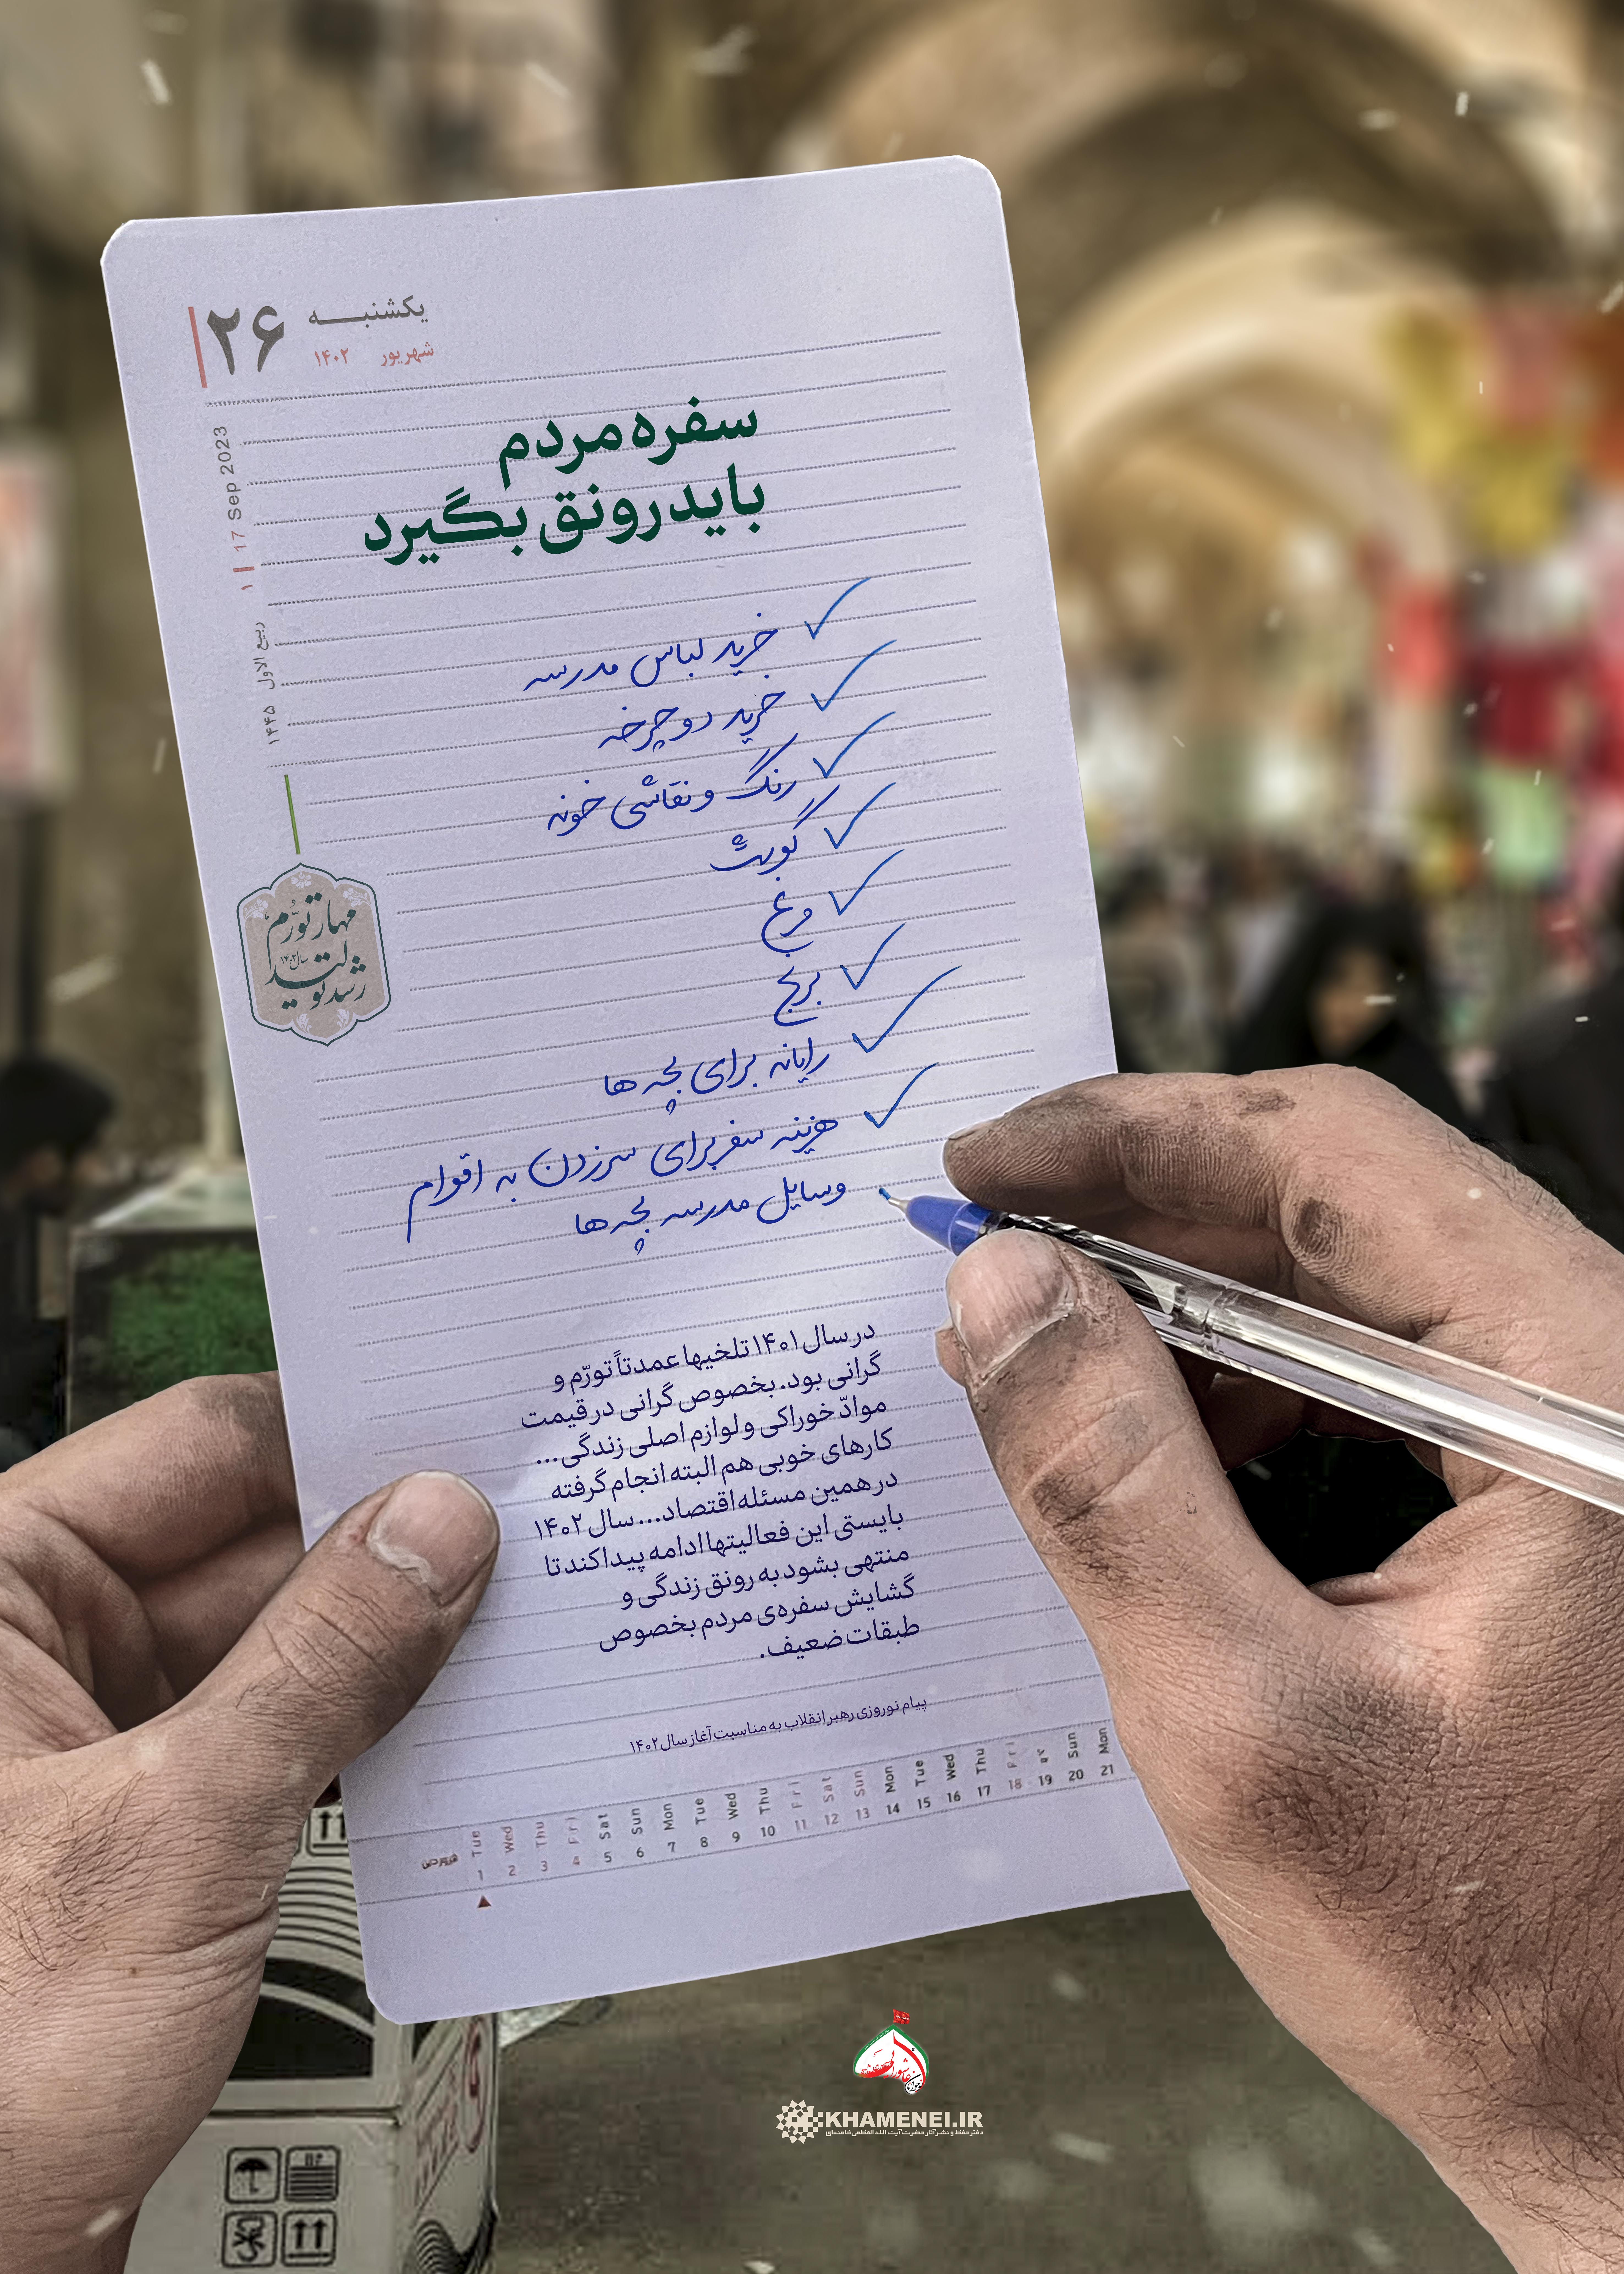 یکشنبه
۲۶
شهریور ۱۴۰۲
17 Sep 2023
۱ ربیع الاول ۱۴۴۵
سفره مردم
باید رونق بگیرد
خرید لباس مدرسه
خرید دوچرخه
رنگ و نقاشی خونه
گوشت
مرغ
برنج
رایانه برای بچه ها
هزینه سفر برای سر زدن به اقوام
وسایل مدرسه بچه ها
مهار تورّم
سال ۱۴۰۲
رشد تولید
در سال ۱۴۰۱ تلخیها عمدتاً تورّم و
گرانی بود. بخصوص گرانی در قیمت
موادّ خوراکی و لوازم اصلی زندگی...
کارهای خوبی هم البته انجام گرفته
در همین مسئله اقتصاد... سال ۱۴۰۲
بایستی این فعالیتها ادامه پیدا کند تا
منتهی بشود به رونق زندگی و
گشایش سفره‌ی مردم بخصوص
طبقات ضعیف.
پیام نوروزی رهبر انقلاب به مناسبت آغاز سال ۱۴۰۲
Tue Wed Thu Fri Sat Sun Mon Tue Wed Thu Fri Sat Sun Mon Tue Wed Thu Fri Sun Mon
فروردین 1 2 3 4 5 6 7 8 9 10 11 12 13 14 15 16 17 18 19 20 21
KHAMENEI.IR
دفتر حفظ و نشر آثار حضرت آیت الله العظمی خامنه‌ای